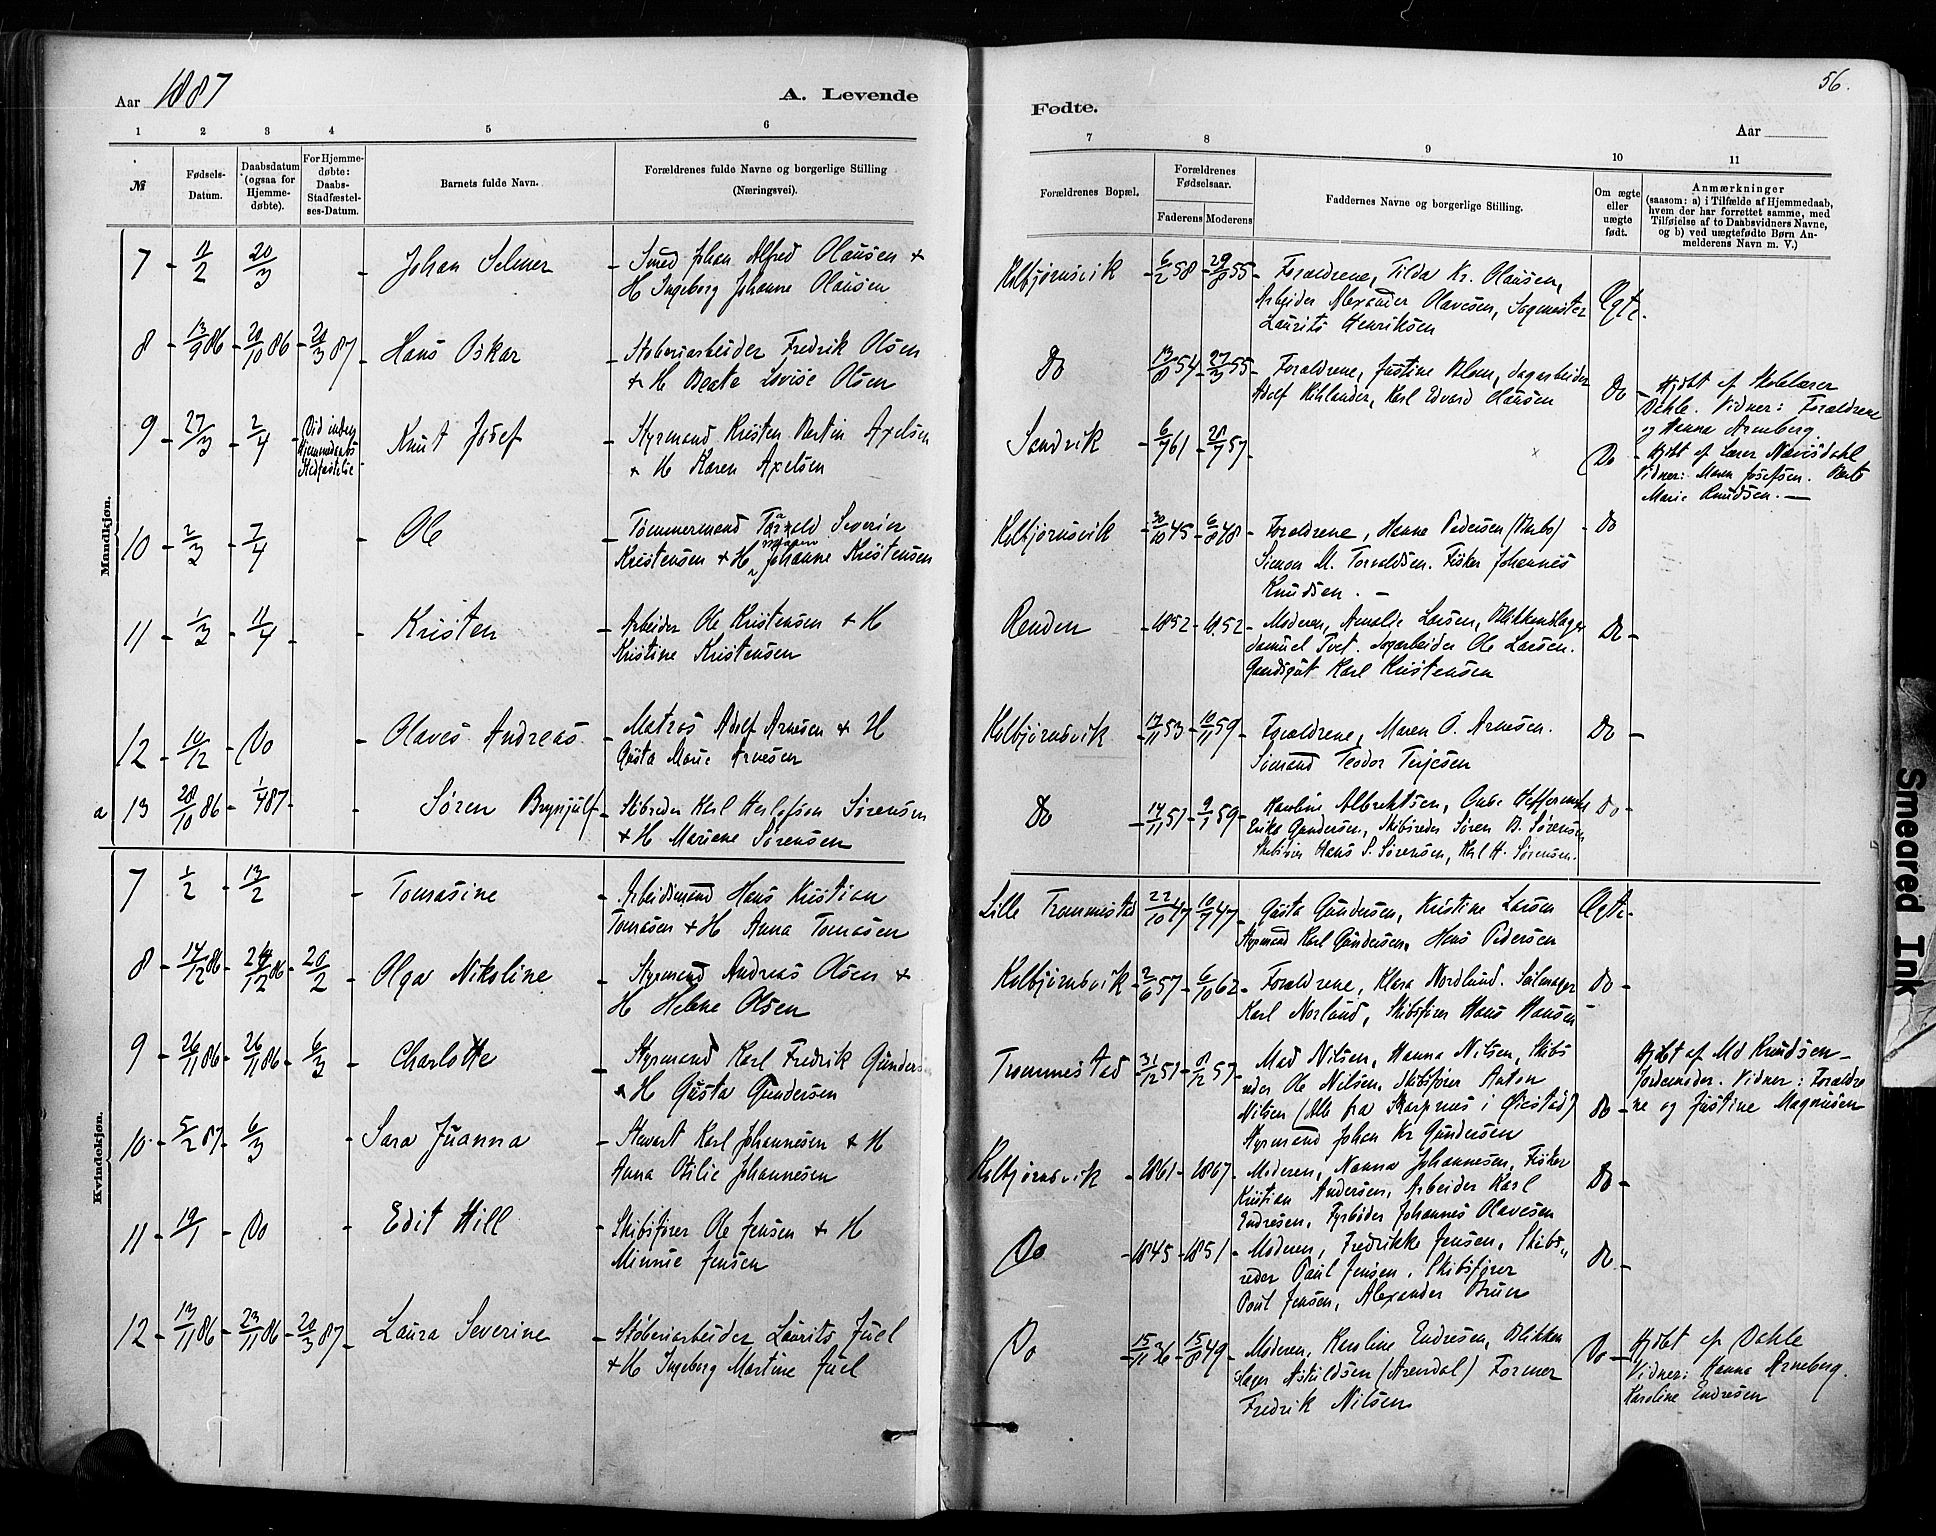 Aar 1887
A. Levende
1 2 3 4 5 6
№
Fødsels-Datum.
Daabsdatum (ogsaa for Hjemme-døbte).
For Hjemme-døbte: Daabs-Stadfæstel-ses-Datum.
Barnets fulde Navn.
Forældrenes fulde Navne og borgerlige Stilling
(Næringsvei).
Mandkjøn.
7 - 11/2 20/3 - Johan Selmer - Smed Johan Alfred Olausen +
H Ingeborg Johanne Olausen
8 - 13/9 86 - 20/10 86 - 20/3 87 - Hans Oskar - Støberiarbeider Fredrik Olsen
+ H Beate Lovise Olsen
9 - 27/3 - 2/4 - Vid inden Hjemmedaabs Stedfæstelse - Knut Josef - Styrmand Kristen Martin Axelsen
+ H Karen Axelsen
10 - 2/3 - 7/4 - Ole - Tømmermand Torvald Severin
Kristensen + H Johanne Kristensen
11 - 1/3 - 11/4 - Kristen - Arbeider Ole Kristensen + H
Kristine Kristensen
12 - 10/12 - Do - Olaves Andreas - Matros Adolf Arnesen + H
Gusta Marie Arnesen
a 13 20/10 86 - 1/4 87 - Søren Brynjulf - Skibsreder Karl Herlofson Sørensen
+ H Mariene Sørensen
Kvindekjøn.
7 1/2 - 13/2 - Tomasine - Arbeidsmand Hans Kristian
Tomasen + H Anna Tomasen
8 - 14/12 86 - 26/12 86 - 20/2 - Olga Nikoline - Styrmand Andreas Olsen +
H Helene Olsen
9 - 26/11 86 - 26/11 86 - 6/3 - Charlotte - Styrmand Karl Fredrik Gunders
+ H Gusta Gundersen
10 - 5/2 87 - 6/3 - Sara Juanna - Stuvart Karl Johannesen + H
Anna Otilie Johannesen
11 - 19/1 - Do - Edit Hill - Skibsfører Ole Jensen + H
Minnie Jensen
12 - 13/11 86 - 23/11 86 - 20/3 87 - Laura Severine - Støberiarbeider Laurits Juel
+ H Ingeborg Martine Juel
56.
Fødte.
Aar
7 8 9 10 11
Forældrenes Bopæl.
Forældrenes Fødselsaar.
Faderens Moderens
Faddernes Navne og borgerlige Stilling.
Om ægte eller uægte født.
Anmærkninger
(saasom: a) i Tilfælde af Hjemmedaab,
hvem der har forrettet samme, med
Tilføielse af to Daabsvidners Navne,
og b) ved uægtefødte Børn An-
melderens Navn m. V.)
Kolbjørnsvik - 6/2 58 - 29/8 55 - Forældrene, Tilda Kr. Olausen,
Arbeider Alexander Olavesen, Sagmester
Laurits Henriksen
Ægte.
Do 13/8 54 - 27/3 55 - Forældrene, Justine Olsen, dagarbeider
Adolf Kihlander, Karl Edvard Olausen
Do - Hjdbt af Skolelærer
Dahle. Vidner: Forældrene
og Hanna Arneberg
Sandvik - 6/7 61 - 20/7 57 -
Do - Hjdbt af Lærer Nævisdahl
Vidner: Maren Josefsen. Berte
Marie Knudsen. -
Kolbjørnsvik - 30/10 45 - 6/8 48 - Forældrene, Hanne Pedersen
Simon M. Torvaldsen. Fisker Johannes
Knudsen. -
Do
Renden - 1852 - 1852 - Moderen, Amalie Larsen, Blikkenslager
Samuel Tvet. Sagarbeider Ole Larsen.
Karl Kristensen
Do -
Kolbjørnsvik - 17/11 53 - 10/11 59 - Forældrene, Maren O. Arnesen.
Sømand Teodor Terjesen
Do -
Do - 14/11 51 - 9/1 59 - Karoline Albrektsen,
Erika Gundersen, Skibsreder Søren B. Sørensen
Skibsfører Hans S. Sørensen, Karl H. Sørensen.
Do -
Lille Trommestad 22/10 47 - 10/7 47 - Gusta Gundersen, Kristine Larsen
Styrmand Karl Gundersen, Hans Pedersen
Ægte
Kolbjørnsvik - 2/6 57 - 6/10 62 - Forældrene, Klara Nordlund. Seilmager
Karl Norlund, Skibsfører Hans Hansen
Do -
Trommestad - 31/12 51 - 8/12 57 - Mad Nilsen, Hanna Nilsen, Skibs
reder Ole Nilsen, Skibsfører Anton
Nilsen (Alle fra Skarpnes i Øiestad)
Styrmand Johan Kr Gundersen
Do -
Hjdbt af Md Knudsen -
Jordemoder. Vidner: Forældre
ne og Justine Magnusen
Kolbjørnsvik - 1861 - 1867 - Moderen, Nanna Johannesen, Fisker
Kristian Andersen, Arbeider Karl
Endresen, Fyrbøder Johannes Olavesen
Do -
Do - 1845 - 1851 - Moderen, Fredrikke Jensen, Skibs„
reder Paul Jensen, Skibsfører
Poul Jensen, Alexander Bruun
Do -
Do - 15/11 36 - 15/8 49 - Moderen, Karoline Endresen, Blikken
slager Askildsen (Arendal) Former
Fredrik Nilsen
Do - Hjdbt af Dahle
Vidner: Hanna Arneberg.
Karoline Endresen
Smeared Ink